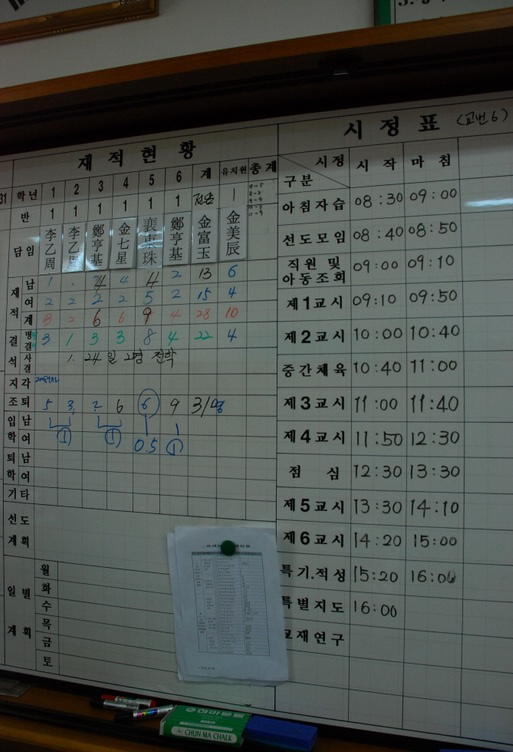 재 적 현 황
31 학년 1 2 3 4 5 6 계 유치원 총계
반 1 1 1 1 1 1 1
담임 李乙周 李乙周 鄭亨基 金七星 珠 鄭亨基 金富玉 金美辰
재적
남 1 4 2 13 6
여 2 2 2 2 5 2 15 4
계 3 2 6 6 9 4 28 10
결석
병결 3 1 3 3 8 4 22 4
사결 1. 24일 2명 전학
지각
조퇴 5 3 2 6 6 9 31명
입학 남
여 1 1 0.5 1
퇴학 남
여
기타
선도계획
일별계획
월
화
수
목
금
토
시 정 표 (교번6)
구분 시정 시작 마침
아침자습 08:30 09:00
선도모임 08:40 08:50
직원 및 아동조회 09:00 09:10
제1교시 09:10 09:50
제2교시 10:00 10:40
중간체육 10:40 11:00
제3교시 11:00 11:40
제4교시 11:50 12:30
점심 12:30 13:30
제5교시 13:30 14:10
제6교시 14:20 15:00
특기.적성 15:20 16:00
특별지도 16:00
교재연구
CHUN MA CHALK